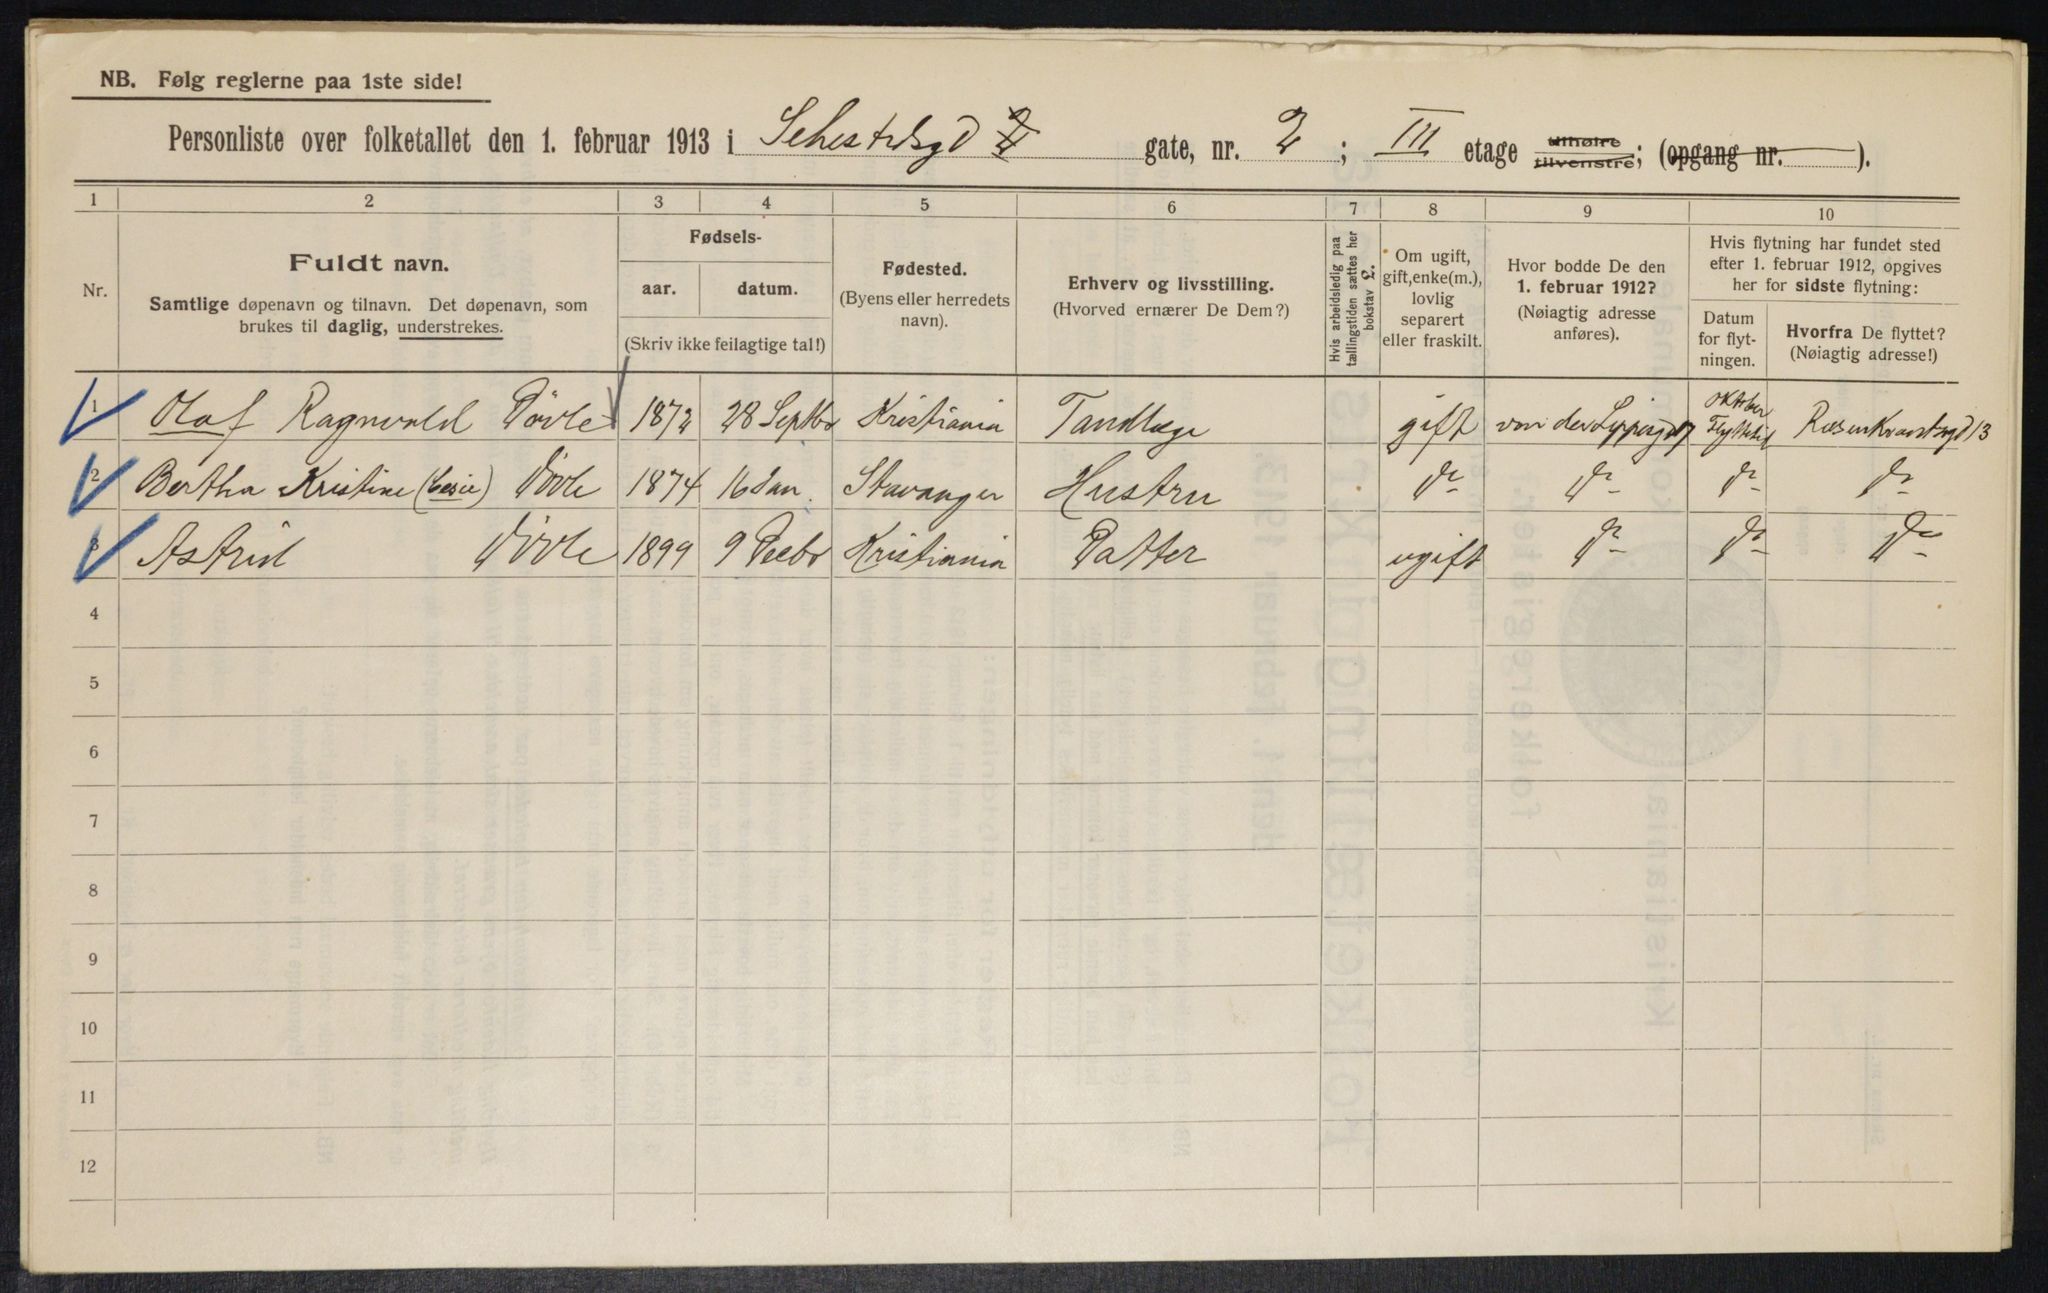 NB. Følg reglerne paa 1ste side!
Personliste over folketallet den 1. februar 1913 i Sehestedsgd 2 gate, nr. 2 ; III etage tilhøire tilvenstre; (opgang nr. ).
1 2 3 4 5 6 7 8 9 10
Nr.
Fuldt navn.
Samtlige døpenavn og tilnavn. Det døpenavn, som
brukes til daglig, understrekes.
Fødsels-
aar. datum.
(Skriv ikke feilagtige tal!)
Fødested.
(Byens eller herredets
navn).
Erhverv og livsstilling.
(Hvorved ernærer De Dem?)
Hvis arbeidsledig paa
tællingstiden sættes her
bokstav L.
Om ugift,
gift, enke(m.),
lovlig
separert
eller fraskilt.
Hvor bodde De den
1. februar 1912?
(Nøiagtig adresse
anføres).
Hvis flytning har fundet sted
efter 1. februar 1912, opgives
her for sidste flytning:
Datum
for flyt-
ningen.
Hvorfra De flyttet?
(Nøiagtig adresse!)
1 Olaf Ragnvald Dövle 1872 28 Septbr Kristiania Tandlæge gift von der Lippesgd 17 Oktober Flyttetid Rosenkrantzgd 13
2 Bertha Kristine Dövle 1874 16 Jan. Stavanger Hustru do do do do
3 Astrid Dövle 1899 9 Decbr Kristiania Datter ugift do do do
4
5
6
7
8
9
10
11
12